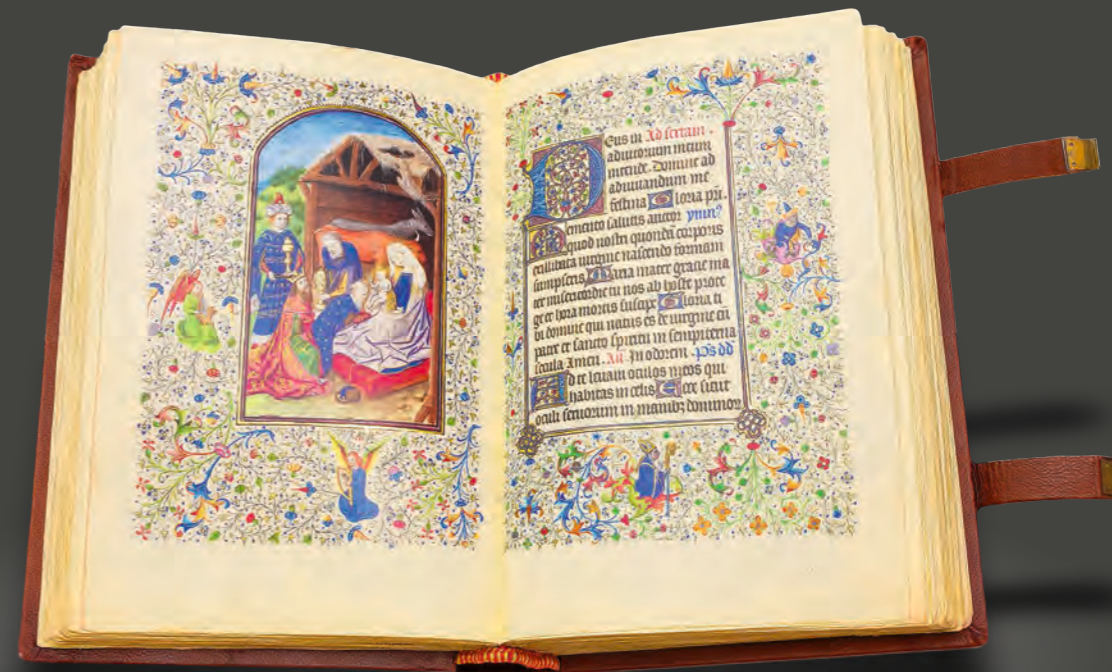 Deus in Ad sextam .
adiutorium meum
intende. Domine ad
adiuuandum me
festina Gloria pr̄i.
Memento salutis auctor ymnꝰ
quod nostri quondā corporis
exillibata uirgine nascendo formam
sumpseris Maria mater gracie ma
ter misericordie tu nos ab hoste prote
ge et hora mortis suscipe Gloria ti
bi domine qui natus es de uirgine cū
patre et sancto spiritu in sempiterna
secula Amen. An. In odorem. Ps dd
Ad te leuaui oculos meos qui
habitas in celis Ecce sicut
oculi seruorum in manibꝫ dominor